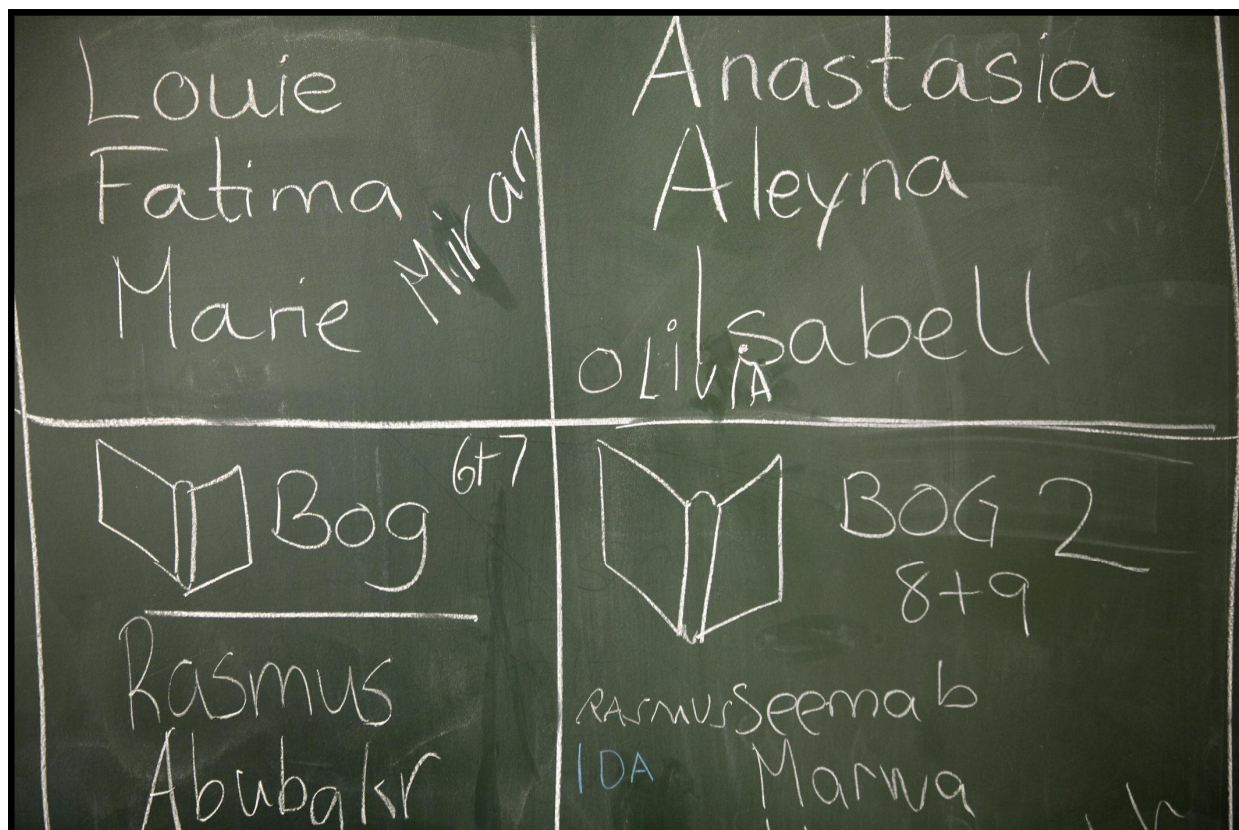 Louie
Fatima
Marie
Miran
Anastasia
Aleyna
Isabell
OLiViA
Bog 6+7
Rasmus
Abubakr
BOG 2
8+9
RASMUS Seemab
IDA Marwa